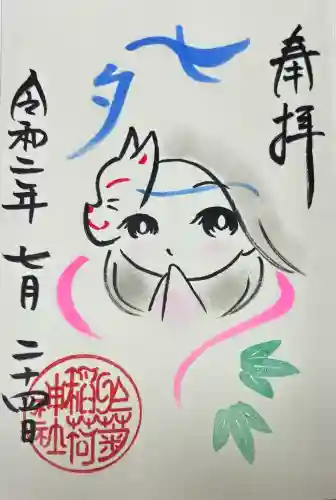 奉拝
七夕
令和二年 七月 二十四日
於菊稲荷神社